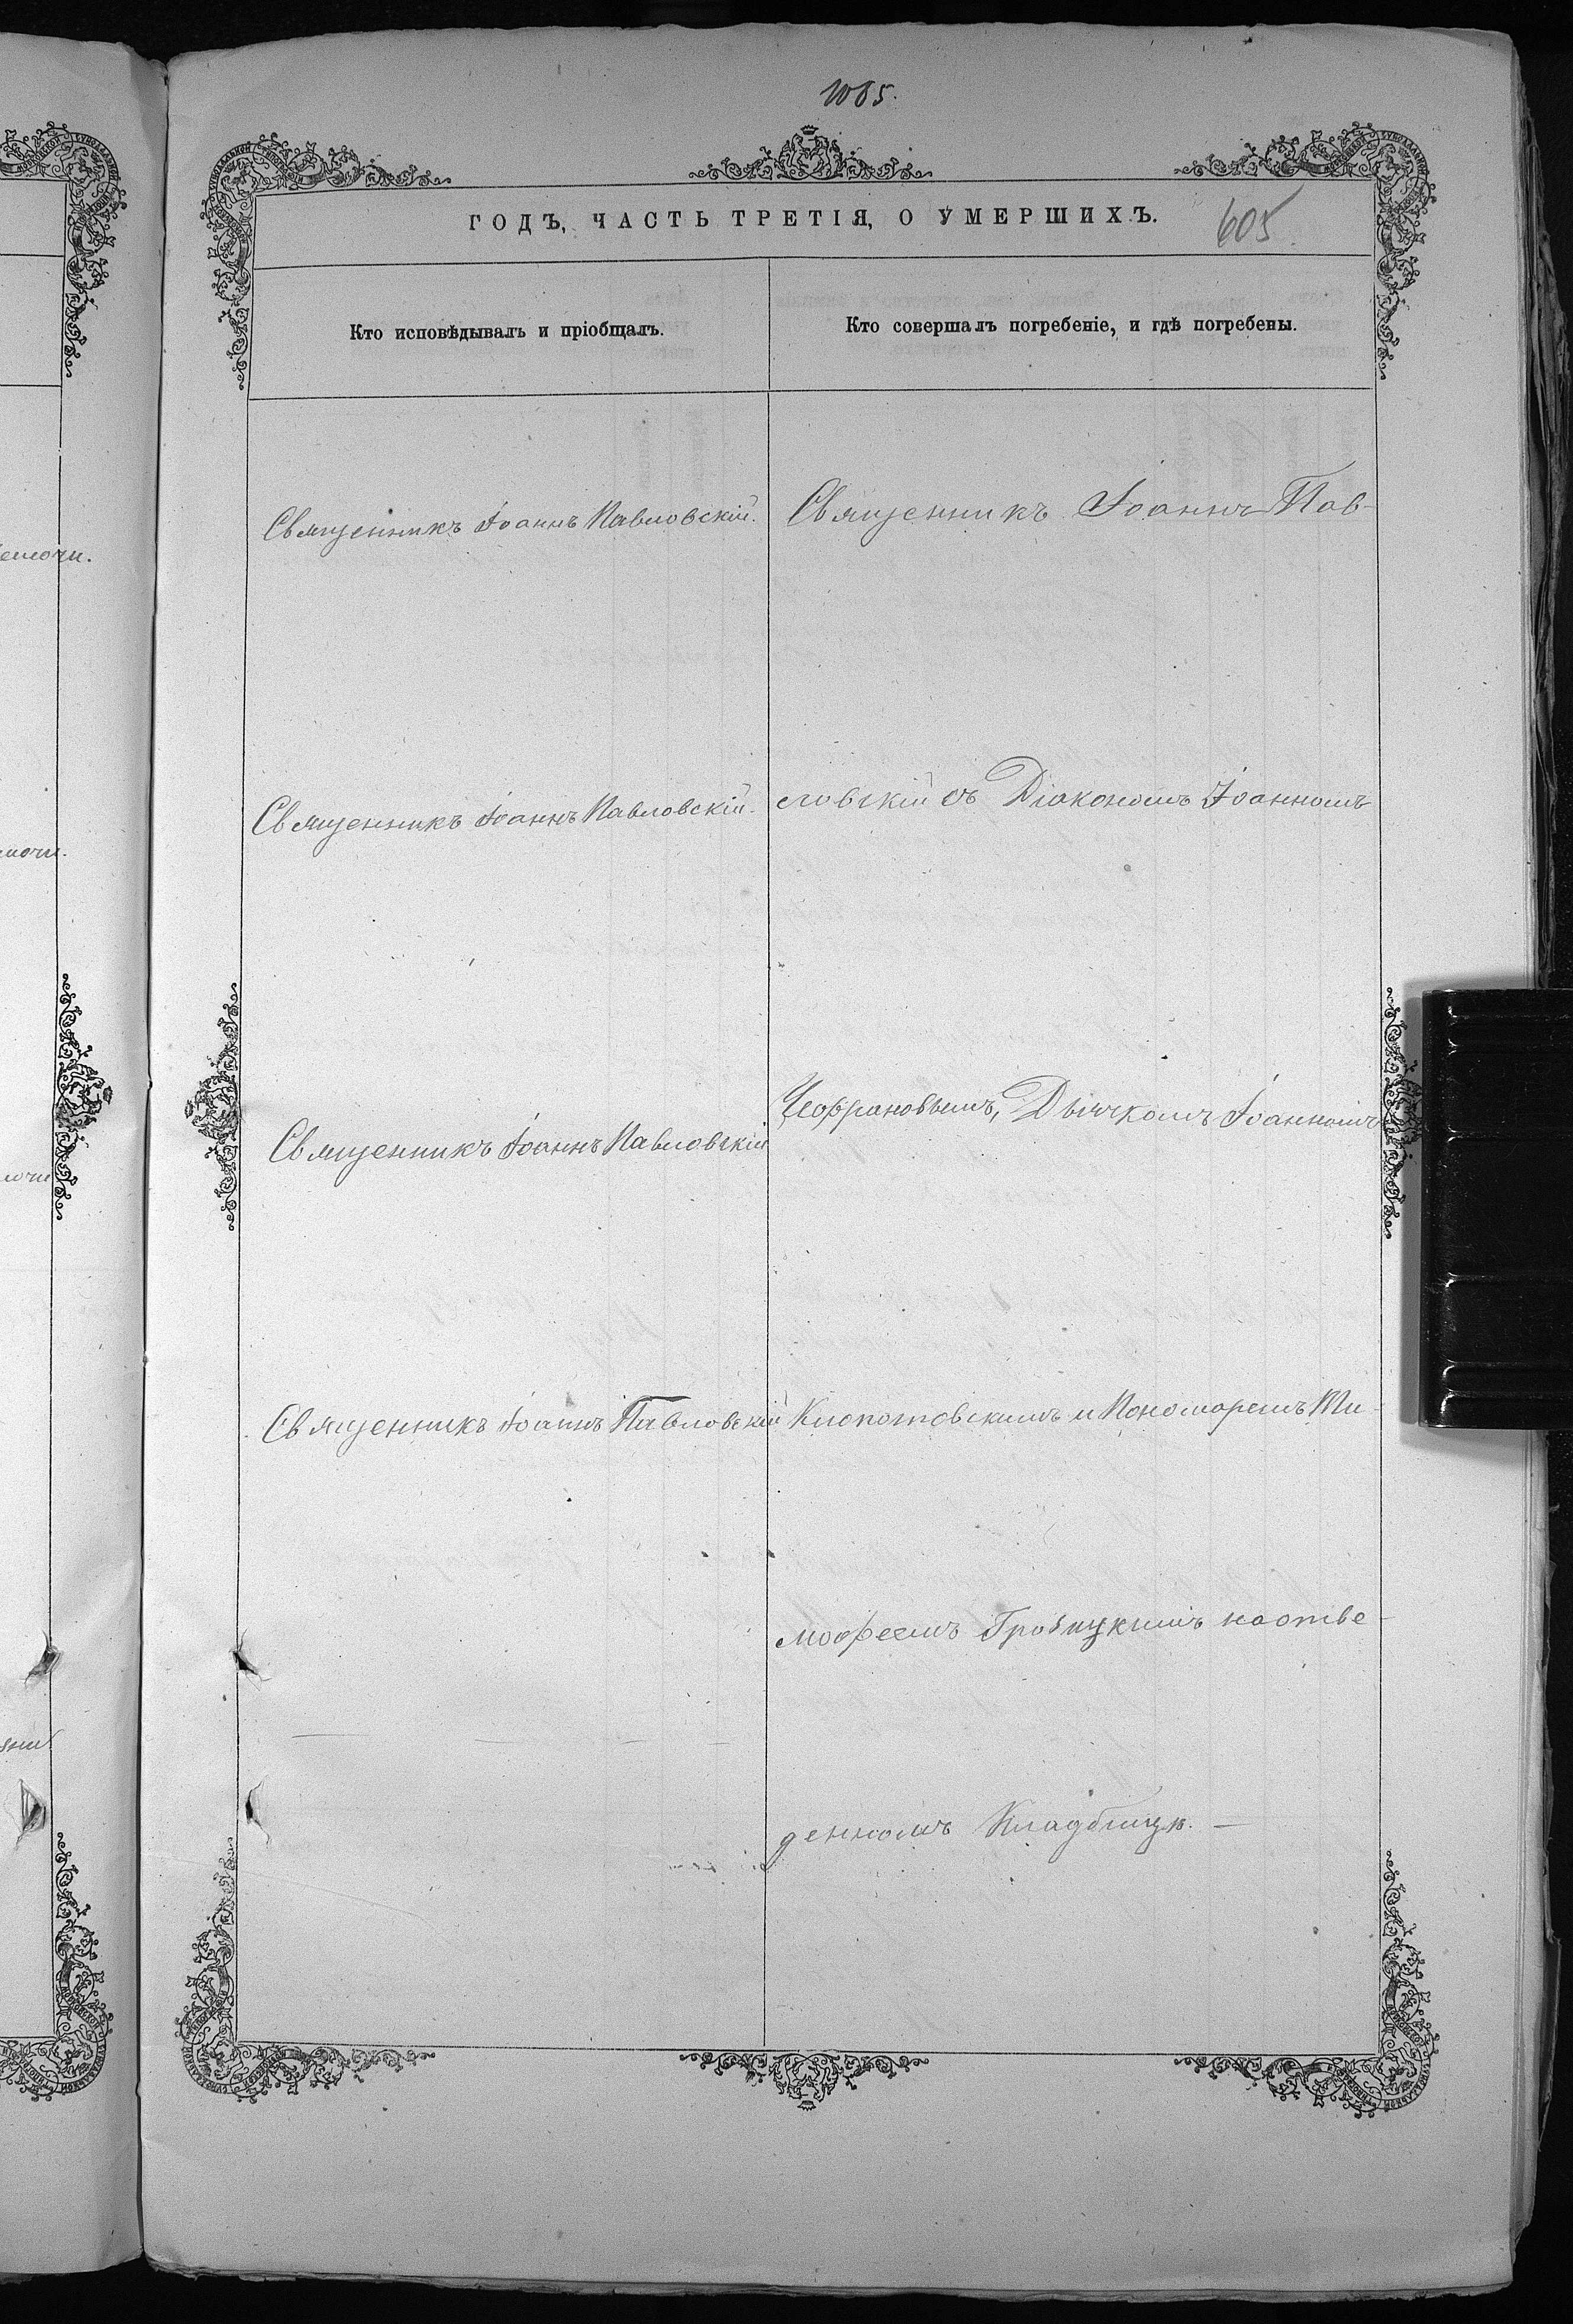 1005.
ГОДЪ, ЧАСТЬ ТРЕТІЯ, О УМЕРШИХЪ.
605.
Кто исповѣдывалъ и пріобщалъ.
Священникъ Іоаннъ Павловскій.
Священникъ Іоаннъ Павловскій.
Священникъ Іоаннъ Павловскій
Священникъ Іоаннъ Павловскій
Кто совершалъ погребеніе, и гдѣ погребены.
Священникъ Іоаннъ Пав-
ловскій съ Діакономъ Іоанномъ
Дьячкомъ Іоанномъ
Клопотовскимъ и Пономаремъ Ти-
мофеемъ на отве-
денномъ Кладбищѣ. —